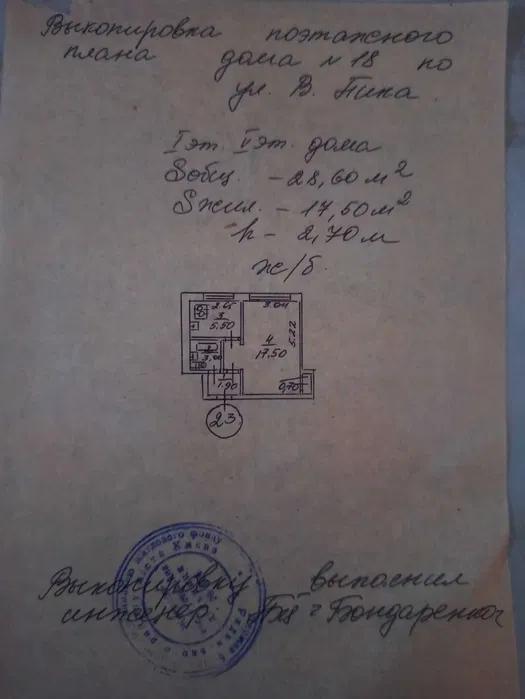 Выкопировка поэтажного
плана дома №18 по
ул. В. Пика.
I эт. V эт. дома
Sобщ. - 28,60 м²
Sжил. - 17,50 м²
h - 2,70 м
ж/б.
2.65
3
5.50
3.04
5.22
4
17.50
2
3.00
1
1.90
0,70
23
Выкопировку выполнил
инженер Бондаренко